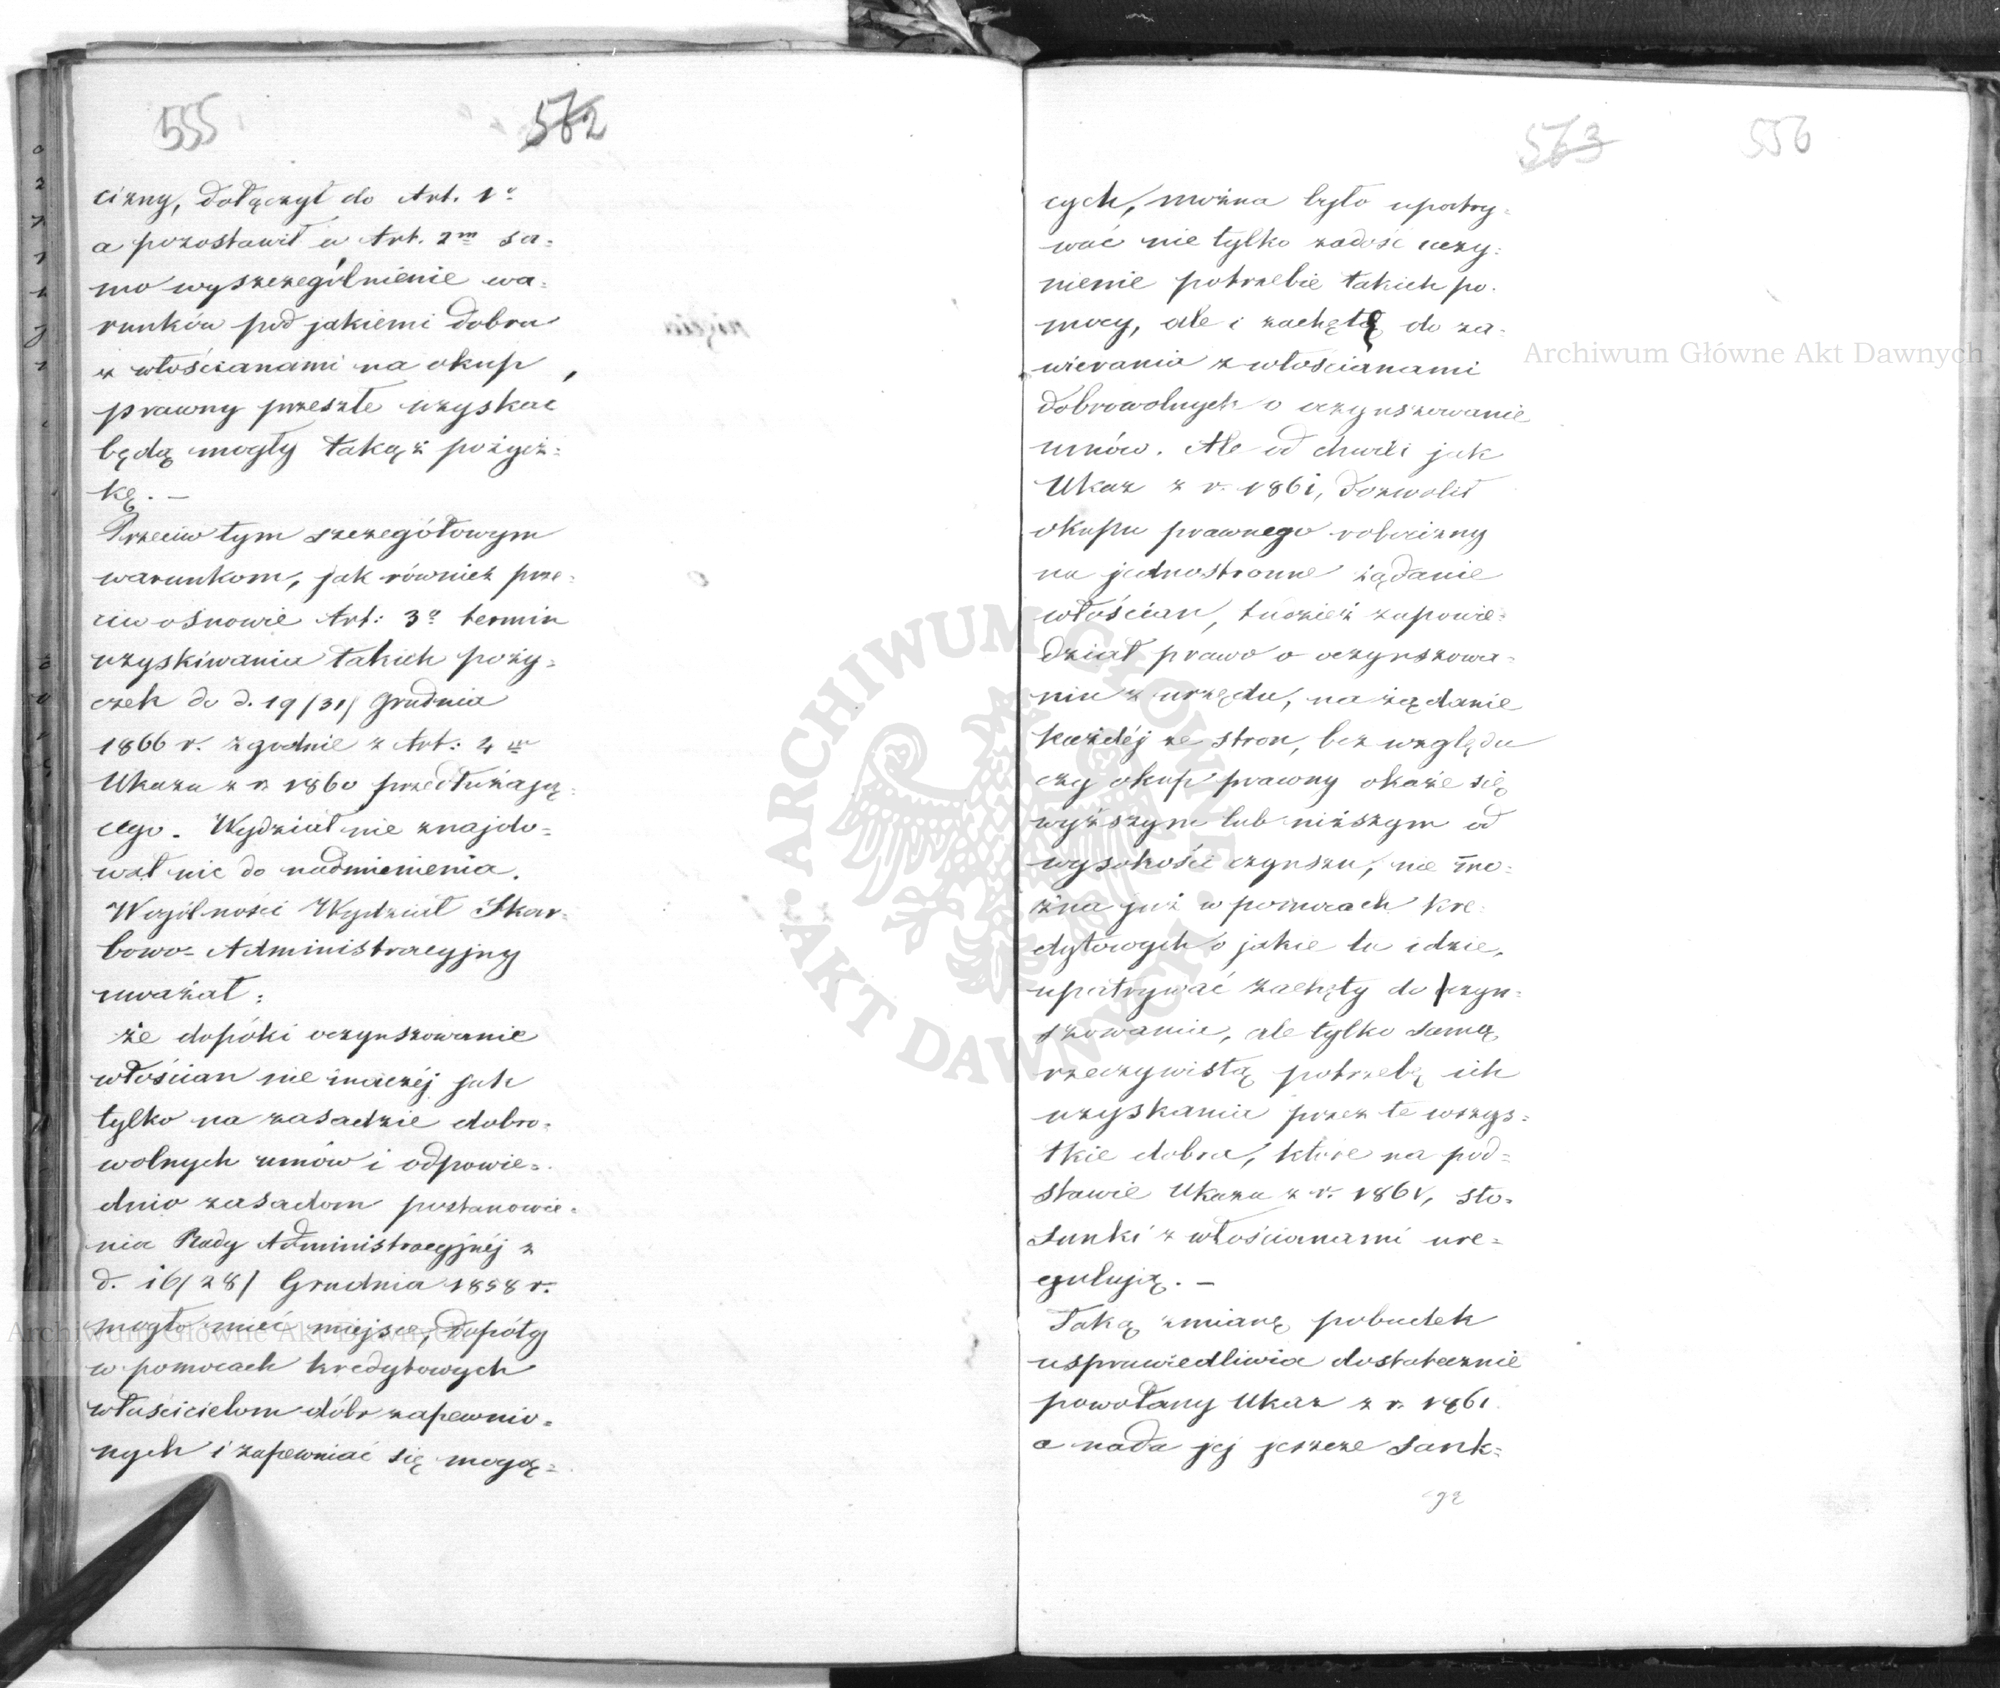 555
572
cizny, dołączył do Art. 1º
a pozostawił w Art. 2m sa=
mo wyszczególnienie wa=
runków pod jakiemi dobra
z włościanami na okup
prawny przeszłe uzyskać
będą mogły takąż pożycz=
kę. –
Przeciw tym szczegółowym
warunkom, jak również prze=
ciw osnowie Art: 3º termin
uzyskiwania takich poży=
czek do d. 19/31/ Grudnia
1866 r. zgodnie z Art: 4m
Ukazu z r. 1860 przedłużają=
cego. Wydział nie znajdo=
wał nic do nadmienienia.
W ogólności Wydział Skar=
bowo=Administracyjny
uważał:
że dopóki oczynszowanie
włościan nie inaczéj jak
tylko na zasadzie dobro=
wolnych umów i odpowie=
dnio zasadom postanowie=
nia Rady Administracyjnéj z
d. 16/28/ Grudnia 1858 r.
mogło mieć miejsce, dopóty
w pomocach kredytowych
właścicielom dóbr zapewnio=
nych i zapewniać się mogą=
573
556
cych, można było upatry=
wać nie tylko zadość uczy=
nienie potrzebie takich po=
mocy, ale i zachętę do za=
wierania z włościanami
dobrowolnych o oczynszowanie
umów. Ale od chwili jak
Ukaz z r. 1861, dozwolił
okupu prawnego robocizny
na jednostronne żądanie
włościan, tudzież zapowie=
dział prawo o oczynszowa=
niu z urzędu, na żądanie
każdéj ze stron, bez względu
czy okup prawny okaże się
wyższym lub niższym od
wysokości czynszu, nie mo=
żna już w pomocach kre=
dytowych o jakie tu idzie,
upatrywać zachęty do oczyn=
szowania, ale tylko samą
rzeczywistą potrzebę ich
uzyskania przez te wszys=
tkie dobra, które na pod=
stawie Ukazu z r. 1861, sto=
sunki z włościanami ure=
gulują. –
Taką zmianę pobudek
usprawiedliwia dostatecznie
powołany Ukaz z r. 1861
a nada jej jeszcze sank=
92
Archiwum Główne Akt Dawnych
Archiwum Główne Akt Dawnych
· ARCHIWUM GŁÓWNE · AKT DAWNYCH